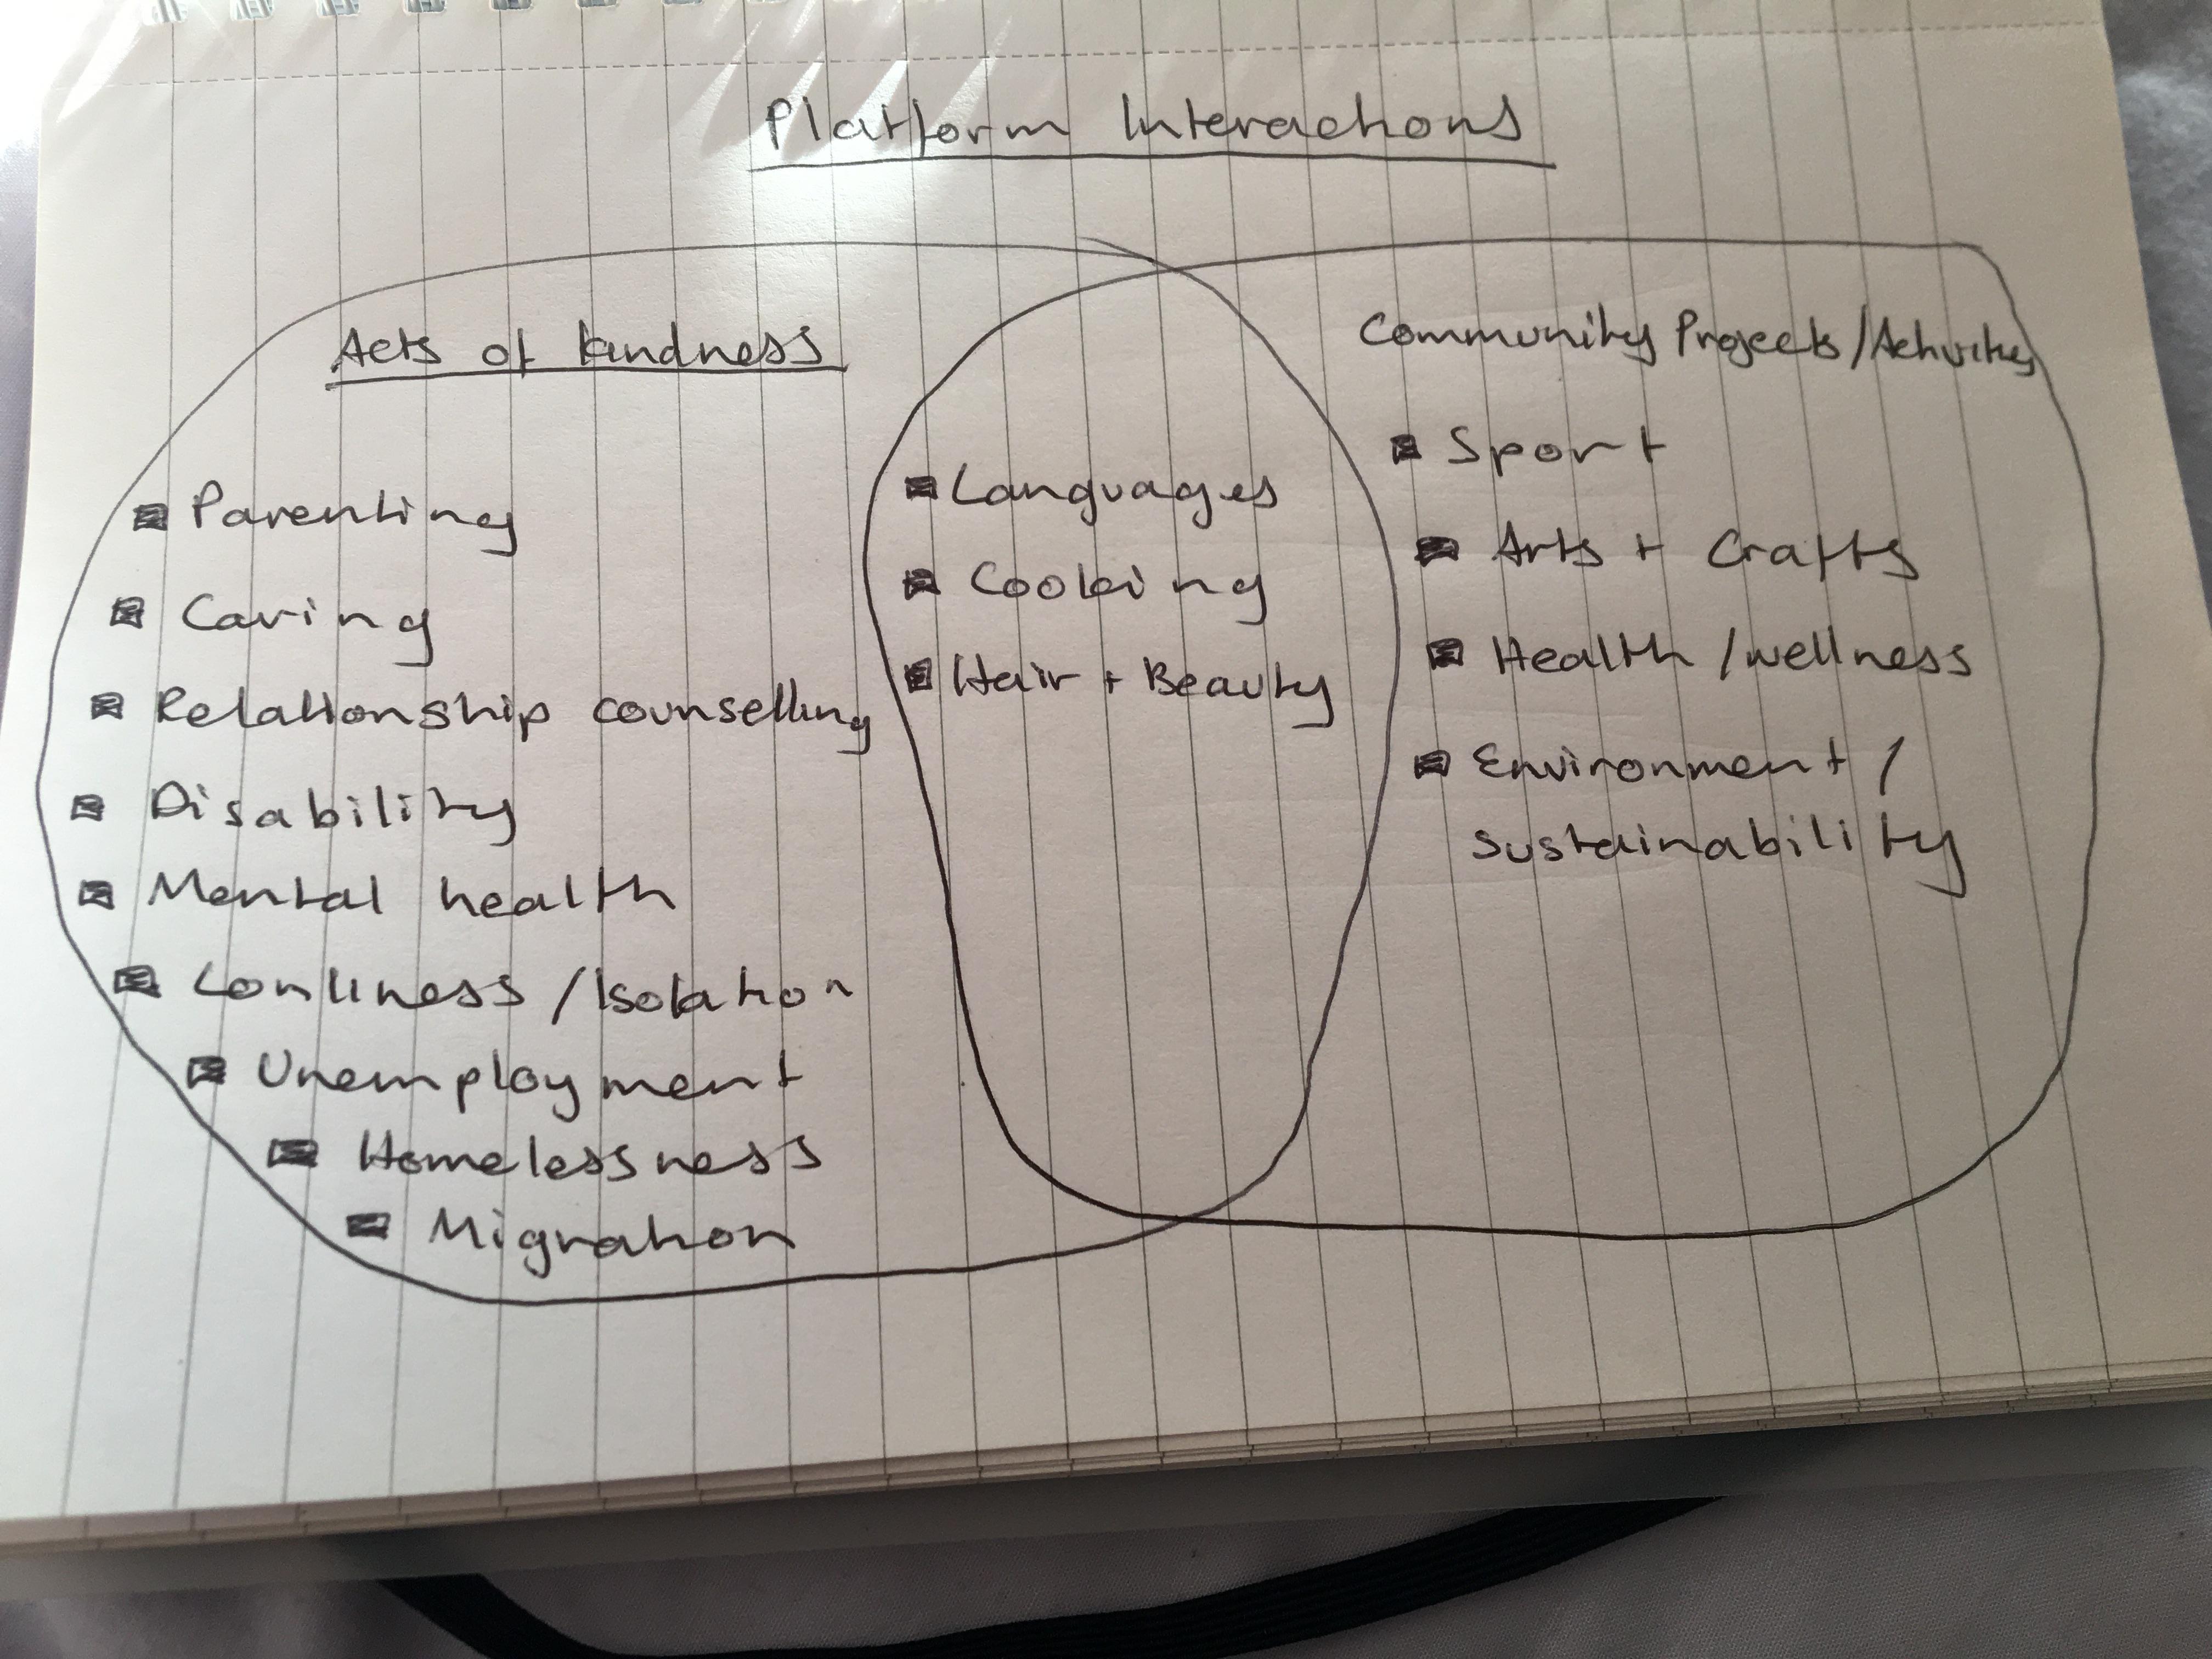 Platform Interactions
Acts of kindness
Parenting
Caring
Relationship counselling
Disability
Mental health
Lonliness / Isolation
Unemployment
Homelessness
Migration
Languages
Cooking
Hair + Beauty
Community Projects / Activities
Sport
Arts + Crafts
Health / wellness
Environment /
sustainability